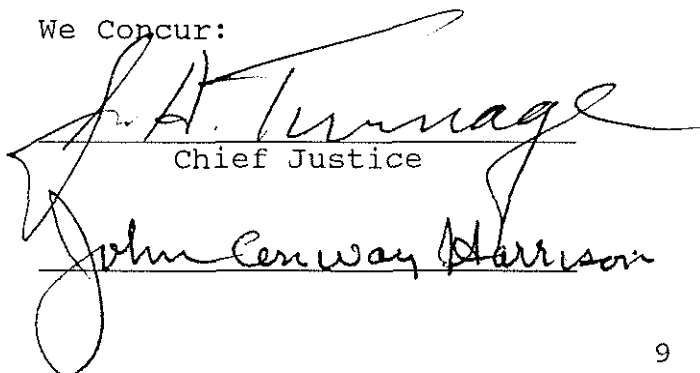 We Concur:
J. A. Turnage
Chief Justice
John Conway Harrison
9